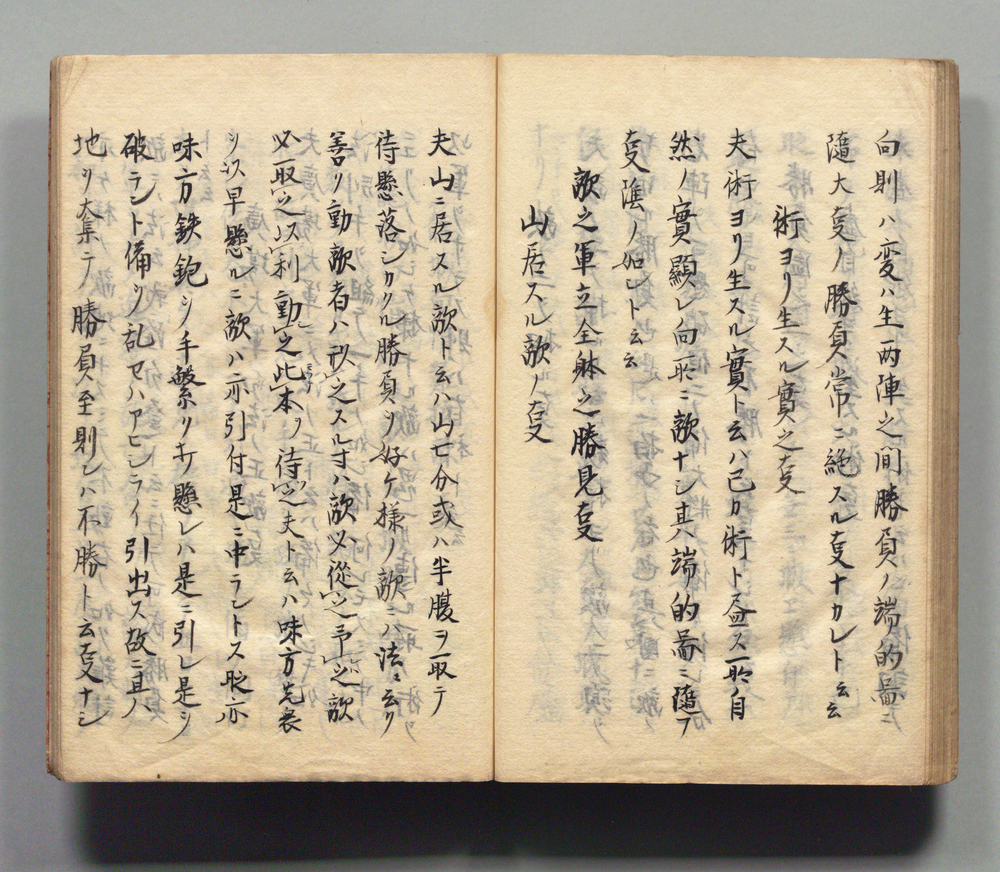 向則ハ変ハ生両陣之間勝負ノ端的啚ニ
隨大㕝ノ勝負常ニ絶スル㕝ナカレト云云
術ヨリ生スル實之㕝
夫術ヨリ生スル實ト云ハ己カ術ト尽ス所自
然ノ實顕レ向所ニ敵ナシ其ハ端的啚ニ隨フ
㕝陰ノ如ト云云
敵之軍立全躰之勝見㕝
山居スル敵ノ㕝
夫山ニ居スル敵ト云ハ山七分或ハ半腹ヲ取テ
待懸落シカヽル勝負ヲ好ケ様ノ敵ニハ法ニ云ク
善ク動敵者ハ以之スル寸ハ敵必從之予之敵
必取之以利動之此本ヲ待之夫ト云ハ味方先衆
ヲ以早懸ルニ敵ハ亦引付是ニ中ラントス跡亦
味方鉄鉋ヲ手繁リキリ懸レハ是ニ引レ是ヲ
破ラント備ヲ乱セハアヒシライ引出ス故ニ其ノ
地ヲ集テ勝負至則ンハ不勝ト云㕝ナシ